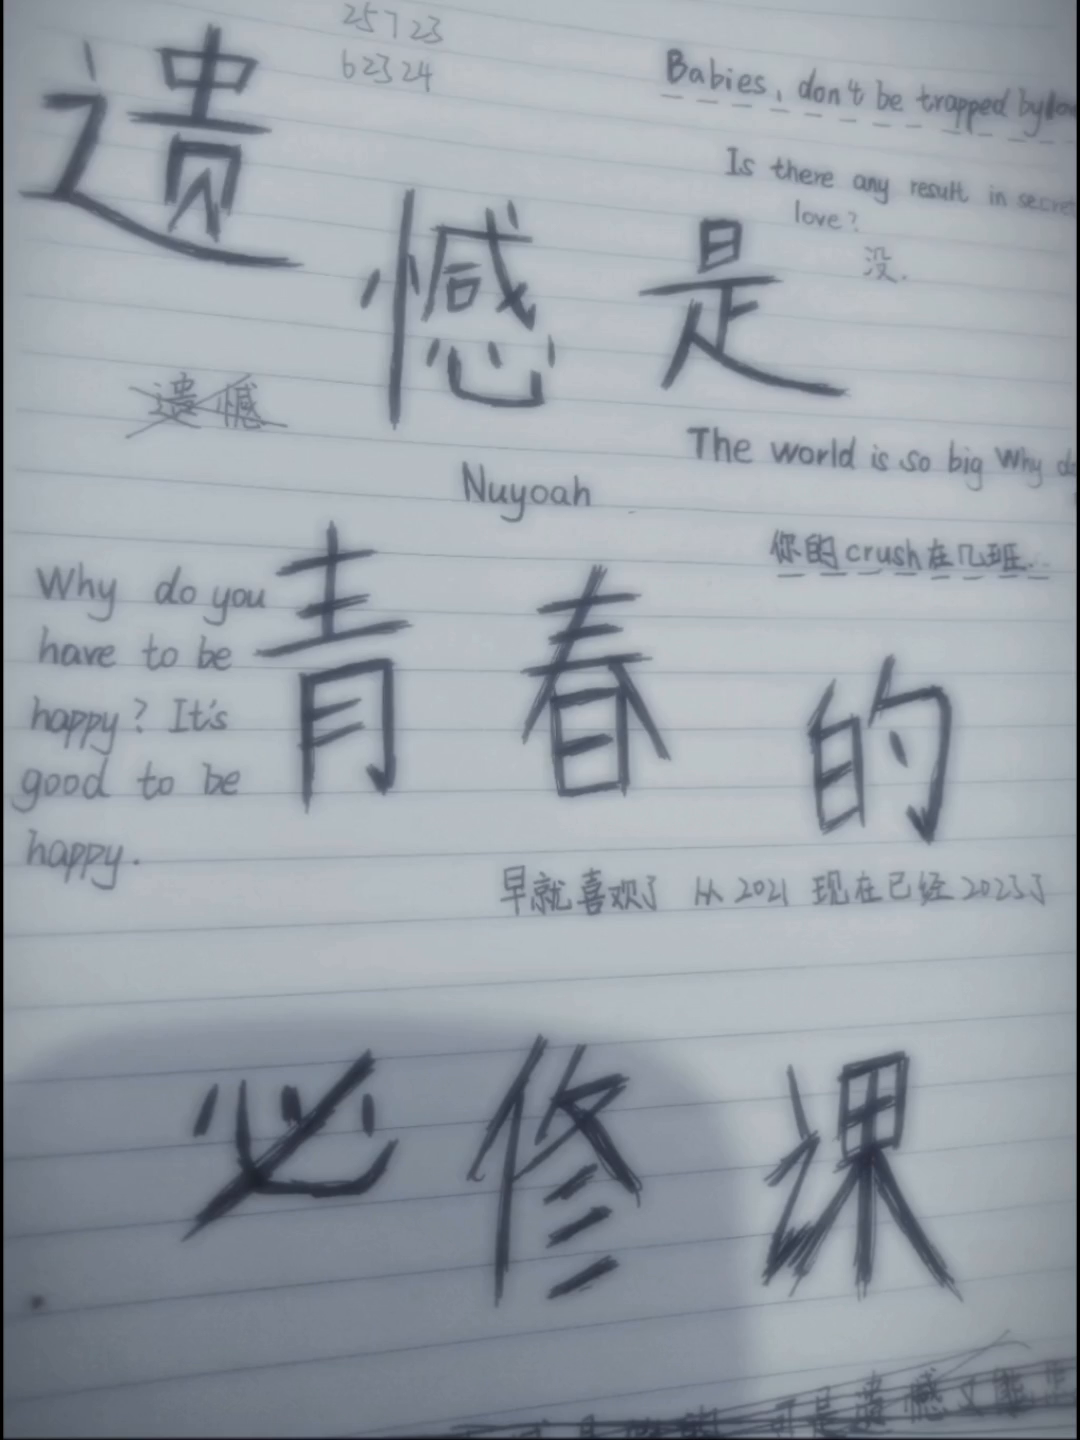 25723
62324
Babies, don't be trapped by
Is there any result in secret
love?
没.
遗憾是
遗憾
The world is so big Why do
Nuyoah
你的crush在几班..
Why do you
have to be
happy? It's
good to be
happy.
青春的
早就喜欢了 从2021 现在已经2023了
必修课
可是遗憾又